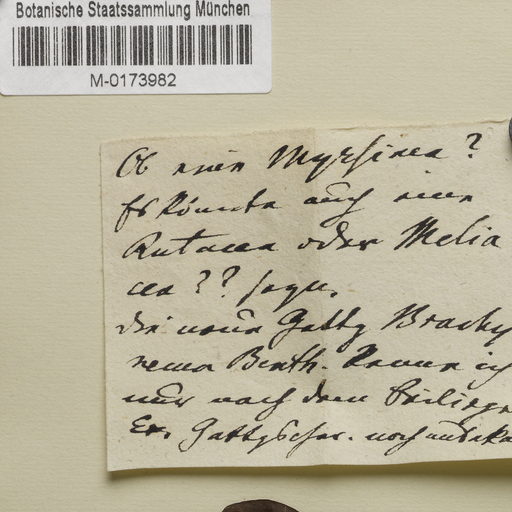 Botanische Staatssammlung München
M-0173982
Ob eine Myrsinea?
Es könnte auch eine
Rutacea oder Melia
cea?? seyn.
die neue Gattg Brachy
nema Benth. kenne ich
nur nach dem
Ex. Gattgschar. noch